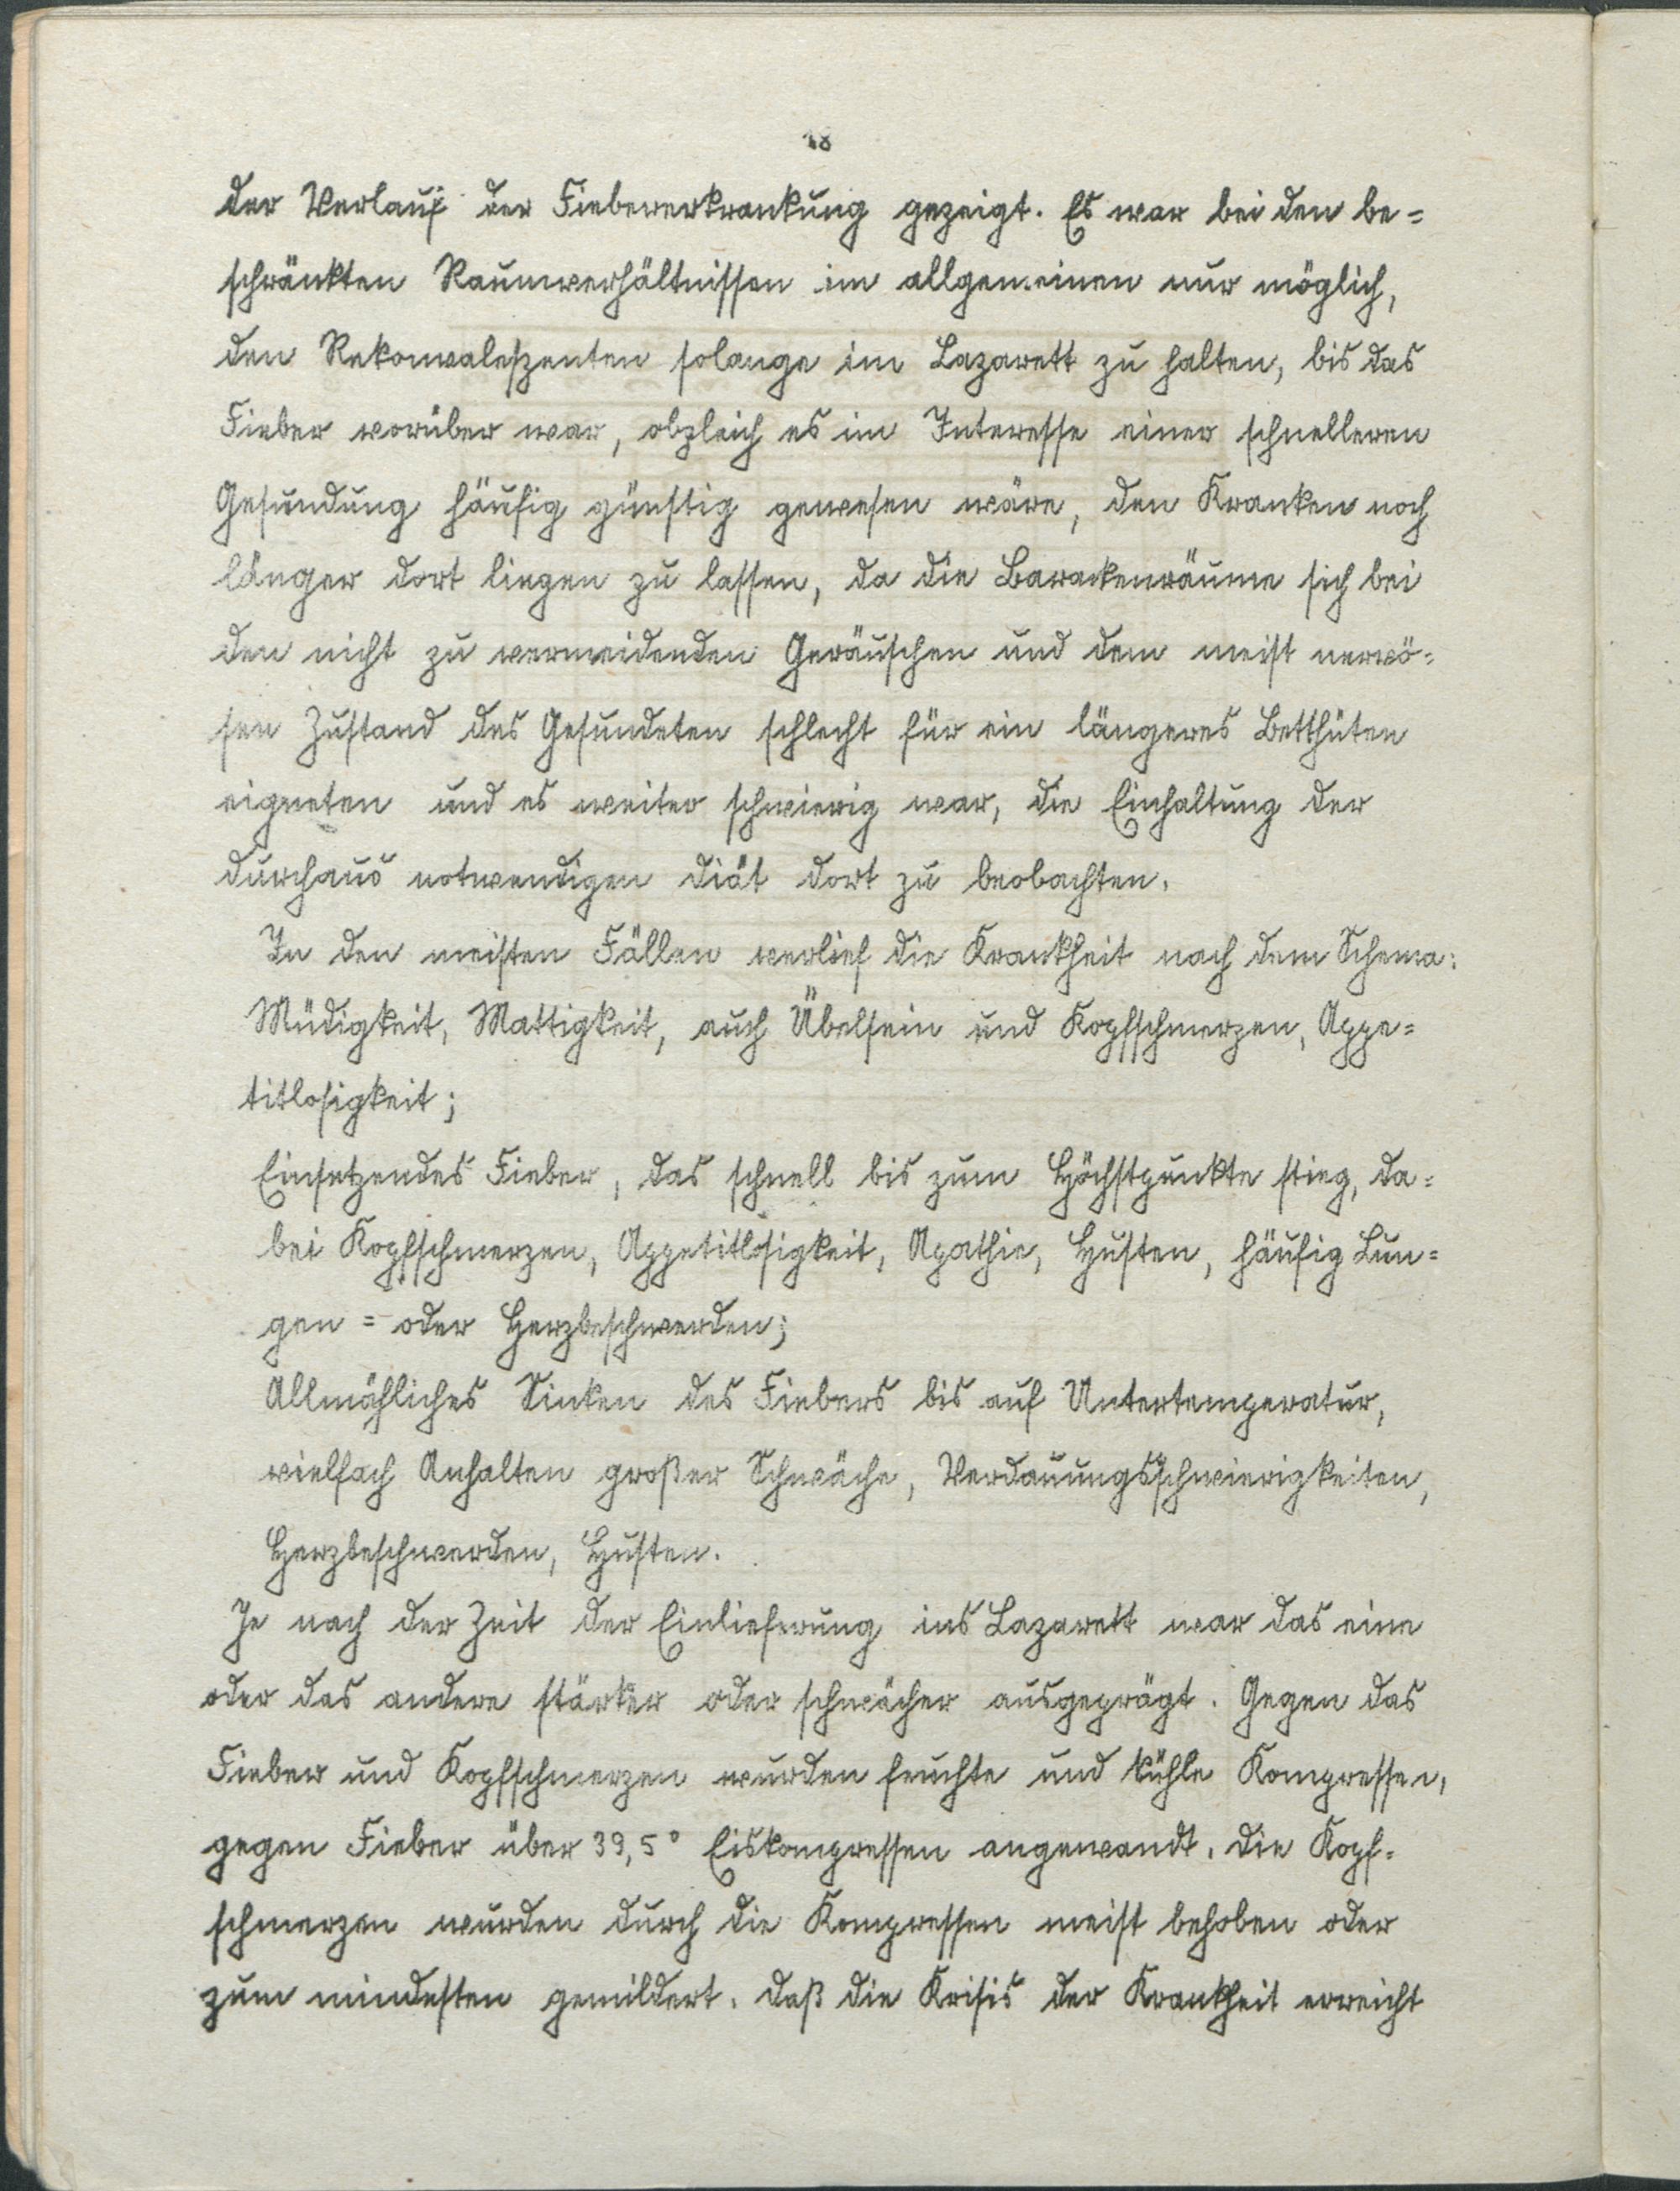 18
der Verlauf der Fiebererkrankung gezeigt. Es war bei den be=
schränkten Raumverhältnissen im allgemeinen nur möglich,
den Rekonvaleszenten solange im Lazarett zu halten, bis das
Fieber vorüber war, obgleich es im Interesse einer schnelleren
Gesundung häufig günstig gewesen wäre, den Kranken noch
länger dort liegen zu lassen, da die Barackenräume sich bei
den nicht zu vermeidenden Geräuschen und dem meist nervö=
sen Zustand des Gesundeten schlecht für ein längeres Betthüten
eigneten und es weiter schwierig war, die Einhaltung der
durchaus notwendigen Diät dort zu beobachten.
In den meisten Fällen verlief die Krankheit nach dem Schema:
Müdigkeit, Mattigkeit, auch Übelsein und Kopfschmerzen, Appe=
titlosigkeit;
Einsetzendes Fieber, das schnell bis zum Höchstpunkte stieg, da=
bei Kopfschmerzen, Appetitlosigkeit, Apathie, Husten, häufig Lun=
gen= oder Herzbeschwerden;
Allmähliches Sinken des Fiebers bis auf Untertemperatur,
vielfach Anhalten großer Schwäche, Verdauungsschwierigkeiten,
Herzbeschwerden, Husten.
Je nach der Zeit der Einlieferung ins Lazarett war das eine
oder das andere stärker oder schwächer ausgeprägt. Gegen das
Fieber und Kopfschmerzen wurden feuchte und kühle Kompressen,
gegen Fieber über 39,5° Eiskompressen angewandt. Die Kopf=
schmerzen wurden durch die Kompressen meist behoben oder
zum mindesten gemildert. Daß die Krisis der Krankheit erreicht